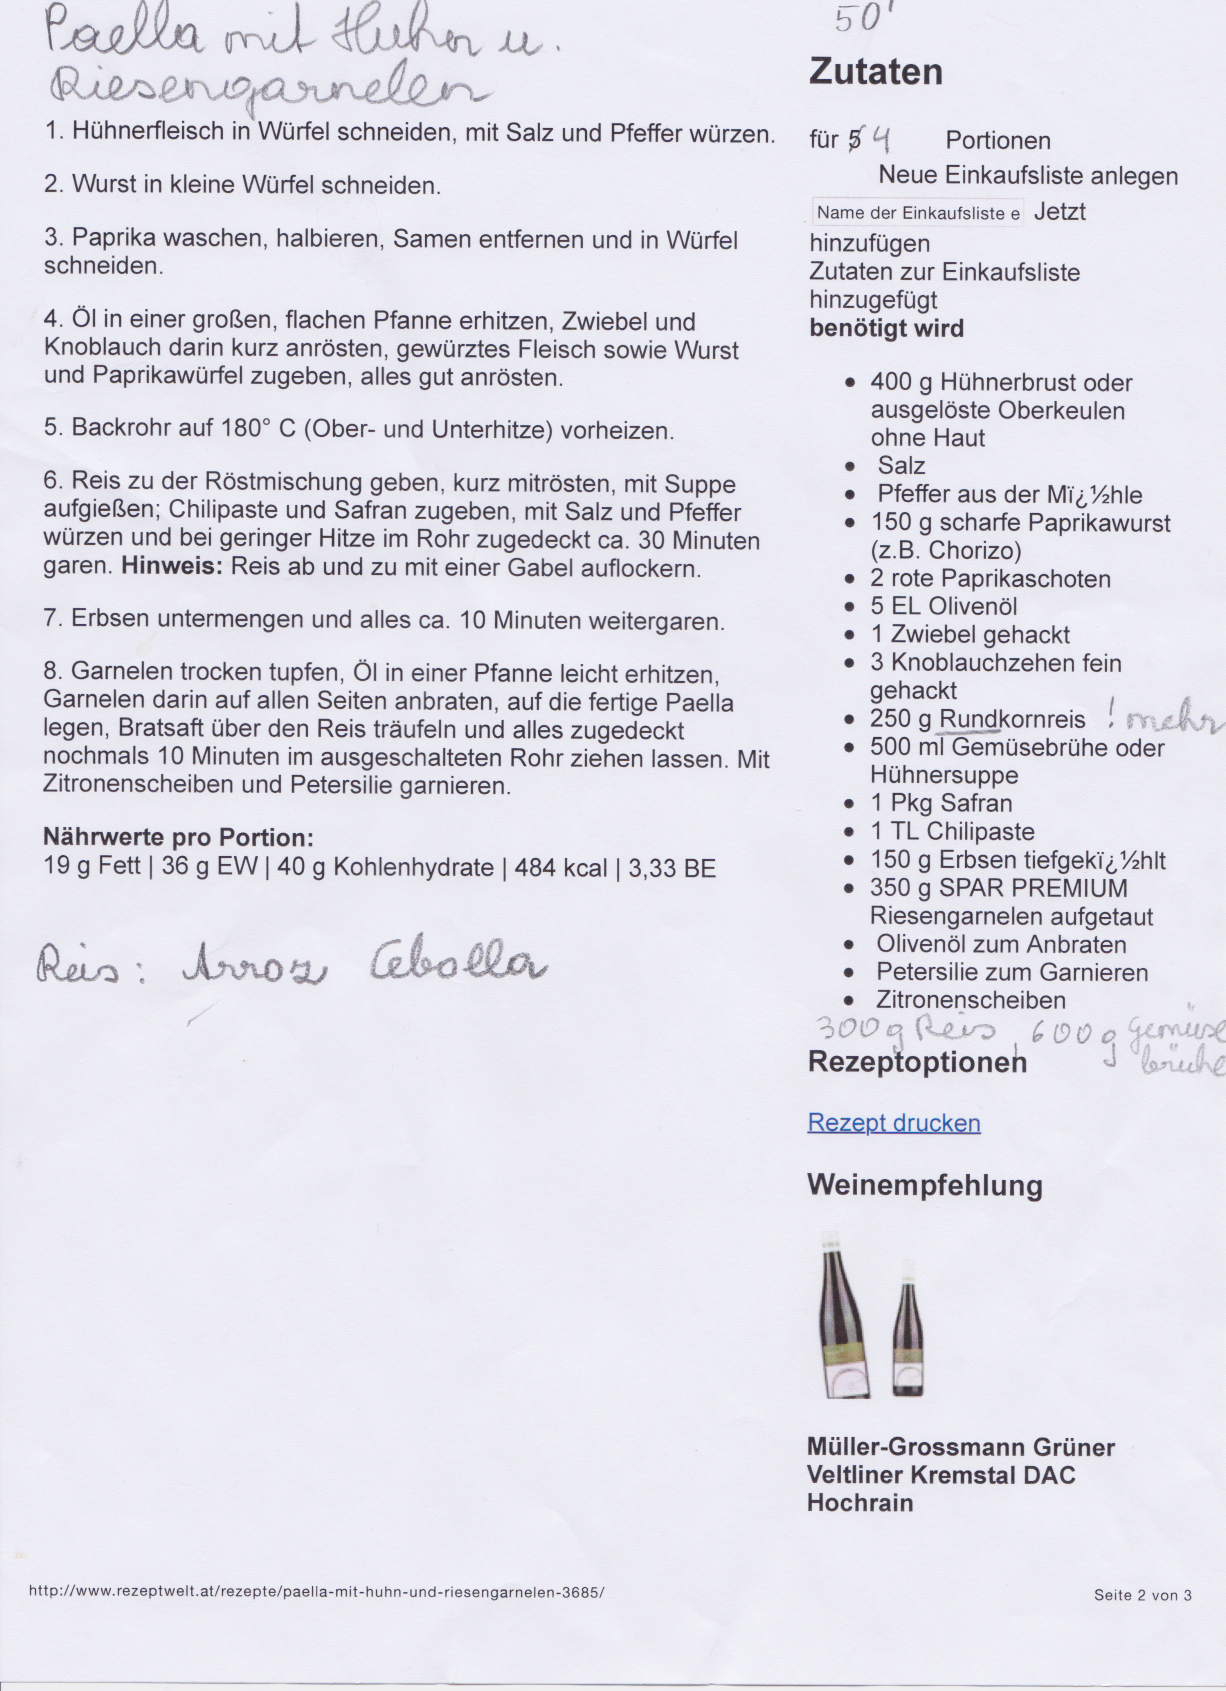 Paella mit Huhn u.
Riesengarnelen
1. Hühnerfleisch in Würfel schneiden, mit Salz und Pfeffer würzen.
2. Wurst in kleine Würfel schneiden.
3. Paprika waschen, halbieren, Samen entfernen und in Würfel
schneiden.
4. Öl in einer großen, flachen Pfanne erhitzen, Zwiebel und
Knoblauch darin kurz anrösten, gewürztes Fleisch sowie Wurst
und Paprikawürfel zugeben, alles gut anrösten.
5. Backrohr auf 180° C (Ober- und Unterhitze) vorheizen.
6. Reis zu der Röstmischung geben, kurz mitrösten, mit Suppe
aufgießen; Chilipaste und Safran zugeben, mit Salz und Pfeffer
würzen und bei geringer Hitze im Rohr zugedeckt ca. 30 Minuten
garen. Hinweis: Reis ab und zu mit einer Gabel auflockern.
7. Erbsen untermengen und alles ca. 10 Minuten weitergaren.
8. Garnelen trocken tupfen, Öl in einer Pfanne leicht erhitzen,
Garnelen darin auf allen Seiten anbraten, auf die fertige Paella
legen, Bratsaft über den Reis träufeln und alles zugedeckt
nochmals 10 Minuten im ausgeschalteten Rohr ziehen lassen. Mit
Zitronenscheiben und Petersilie garnieren.
Nährwerte pro Portion:
19 g Fett | 36 g EW | 40 g Kohlenhydrate | 484 kcal | 3,33 BE
Reis: Arroz Cebolla
50'
Zutaten
für 5 4 Portionen
Neue Einkaufsliste anlegen
Name der Einkaufsliste e Jetzt
hinzufügen
Zutaten zur Einkaufsliste
hinzugefügt
benötigt wird
• 400 g Hühnerbrust oder
ausgelöste Oberkeulen
ohne Haut
• Salz
• Pfeffer aus der Mï¿½hle
• 150 g scharfe Paprikawurst
(z.B. Chorizo)
• 2 rote Paprikaschoten
• 5 EL Olivenöl
• 1 Zwiebel gehackt
• 3 Knoblauchzehen fein
gehackt
• 250 g Rundkornreis ! mehr
• 500 ml Gemüsebrühe oder
Hühnersuppe
• 1 Pkg Safran
• 1 TL Chilipaste
• 150 g Erbsen tiefgekï¿½hlt
• 350 g SPAR PREMIUM
Riesengarnelen aufgetaut
• Olivenöl zum Anbraten
• Petersilie zum Garnieren
• Zitronenscheiben
300g Reis, 600g Gemüse
brühe
Rezeptoptionen
Rezept drucken
Weinempfehlung
Müller-Grossmann Grüner
Veltliner Kremstal DAC
Hochrain
http://www.rezeptwelt.at/rezepte/paella-mit-huhn-und-riesengarnelen-3685/
Seite 2 von 3